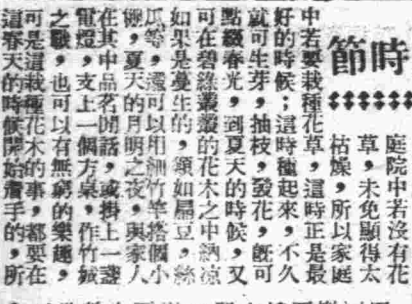 時節
庭院中若沒有花
草，未免顯得太
枯燥，所以家庭
中若要栽種花草，這時正是最
好的時候；這時種起來，不久
就可生芽，抽枝，發花，既可
點綴春光，到夏天的時候，又
可在碧綠叢叢的花木之中納涼
如果是蔓生的，類如扁豆，絲
瓜等，還可以用細竹竿搭個小
棚，夏天的月明之夜，與家人
在其中品名閒話，或掛上一盞
電燈，支上一個方桌，作竹城
之戲，也可以有無窮的樂趣，
可是這栽種花木的事，都要在
這春天的時候開始着手的，所